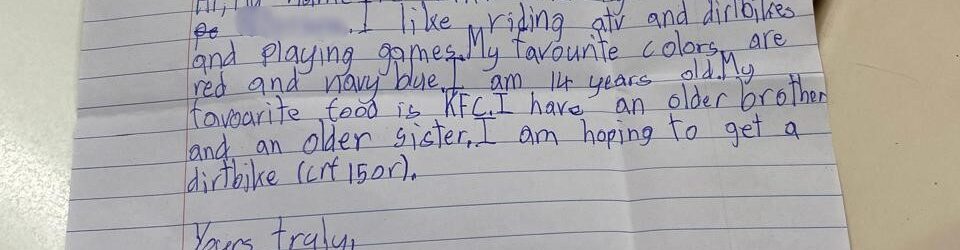 Hi, my name
. I like riding atv and dirtbikes
and playing games. My favourite colors are
red and navy blue. I am 14 years old. My
favoarite food is KFC. I have an older brother
and an older sister. I am hoping to get a
dirtbike (crf 150r).
Yours truly,